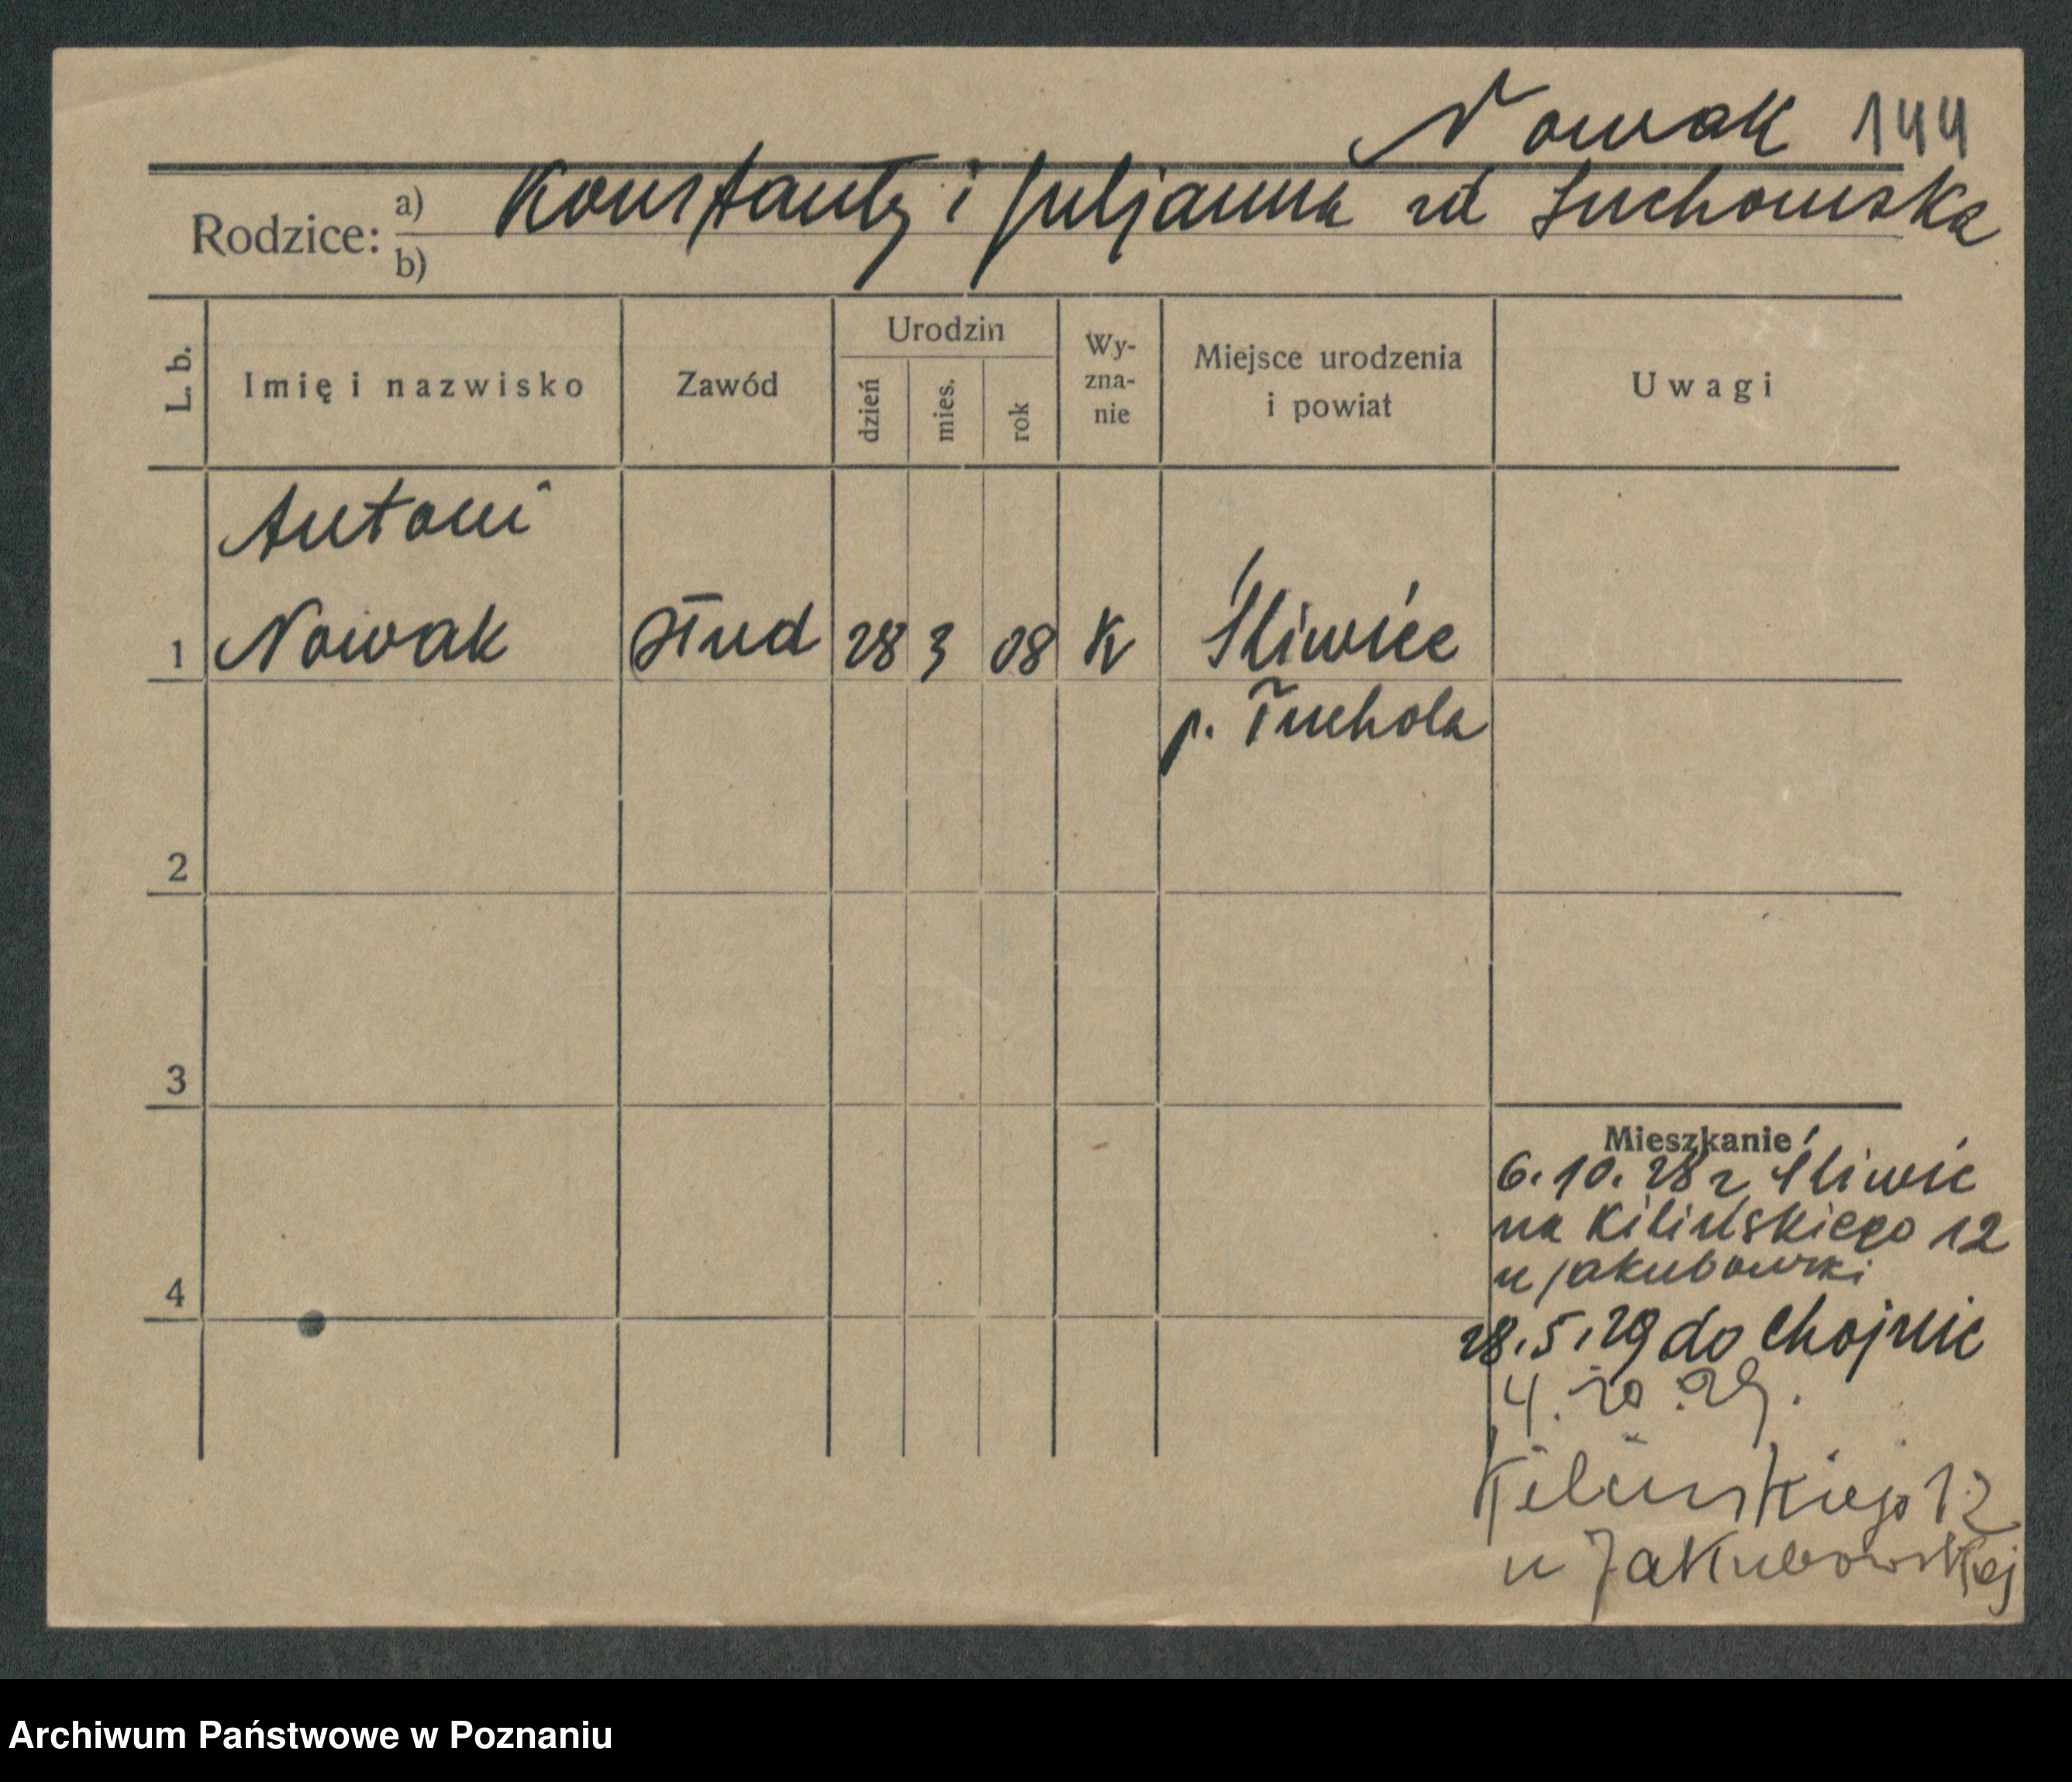 Nowak 144
Rodzice: a) Konstanty i Juljanna zd Suchomska
b)
L. b.
Imię i nazwisko
Zawód
Urodzin
dzień
mies.
rok
Wy-
zna-
nie
Miejsce urodzenia
i powiat
Uwagi
Antoni
1 Nowak stud 28 3 08 K Śliwice
p. Tuchola
2
3
4
Mieszkanie
6.10.28 z Śliwic
na Kilińskiego 12
u Jakubowski
28.5.29 do Chojnic
4. 10. 29.
Kilińskiego 12
u Jakubowskiej
Archiwum Państwowe w Poznaniu